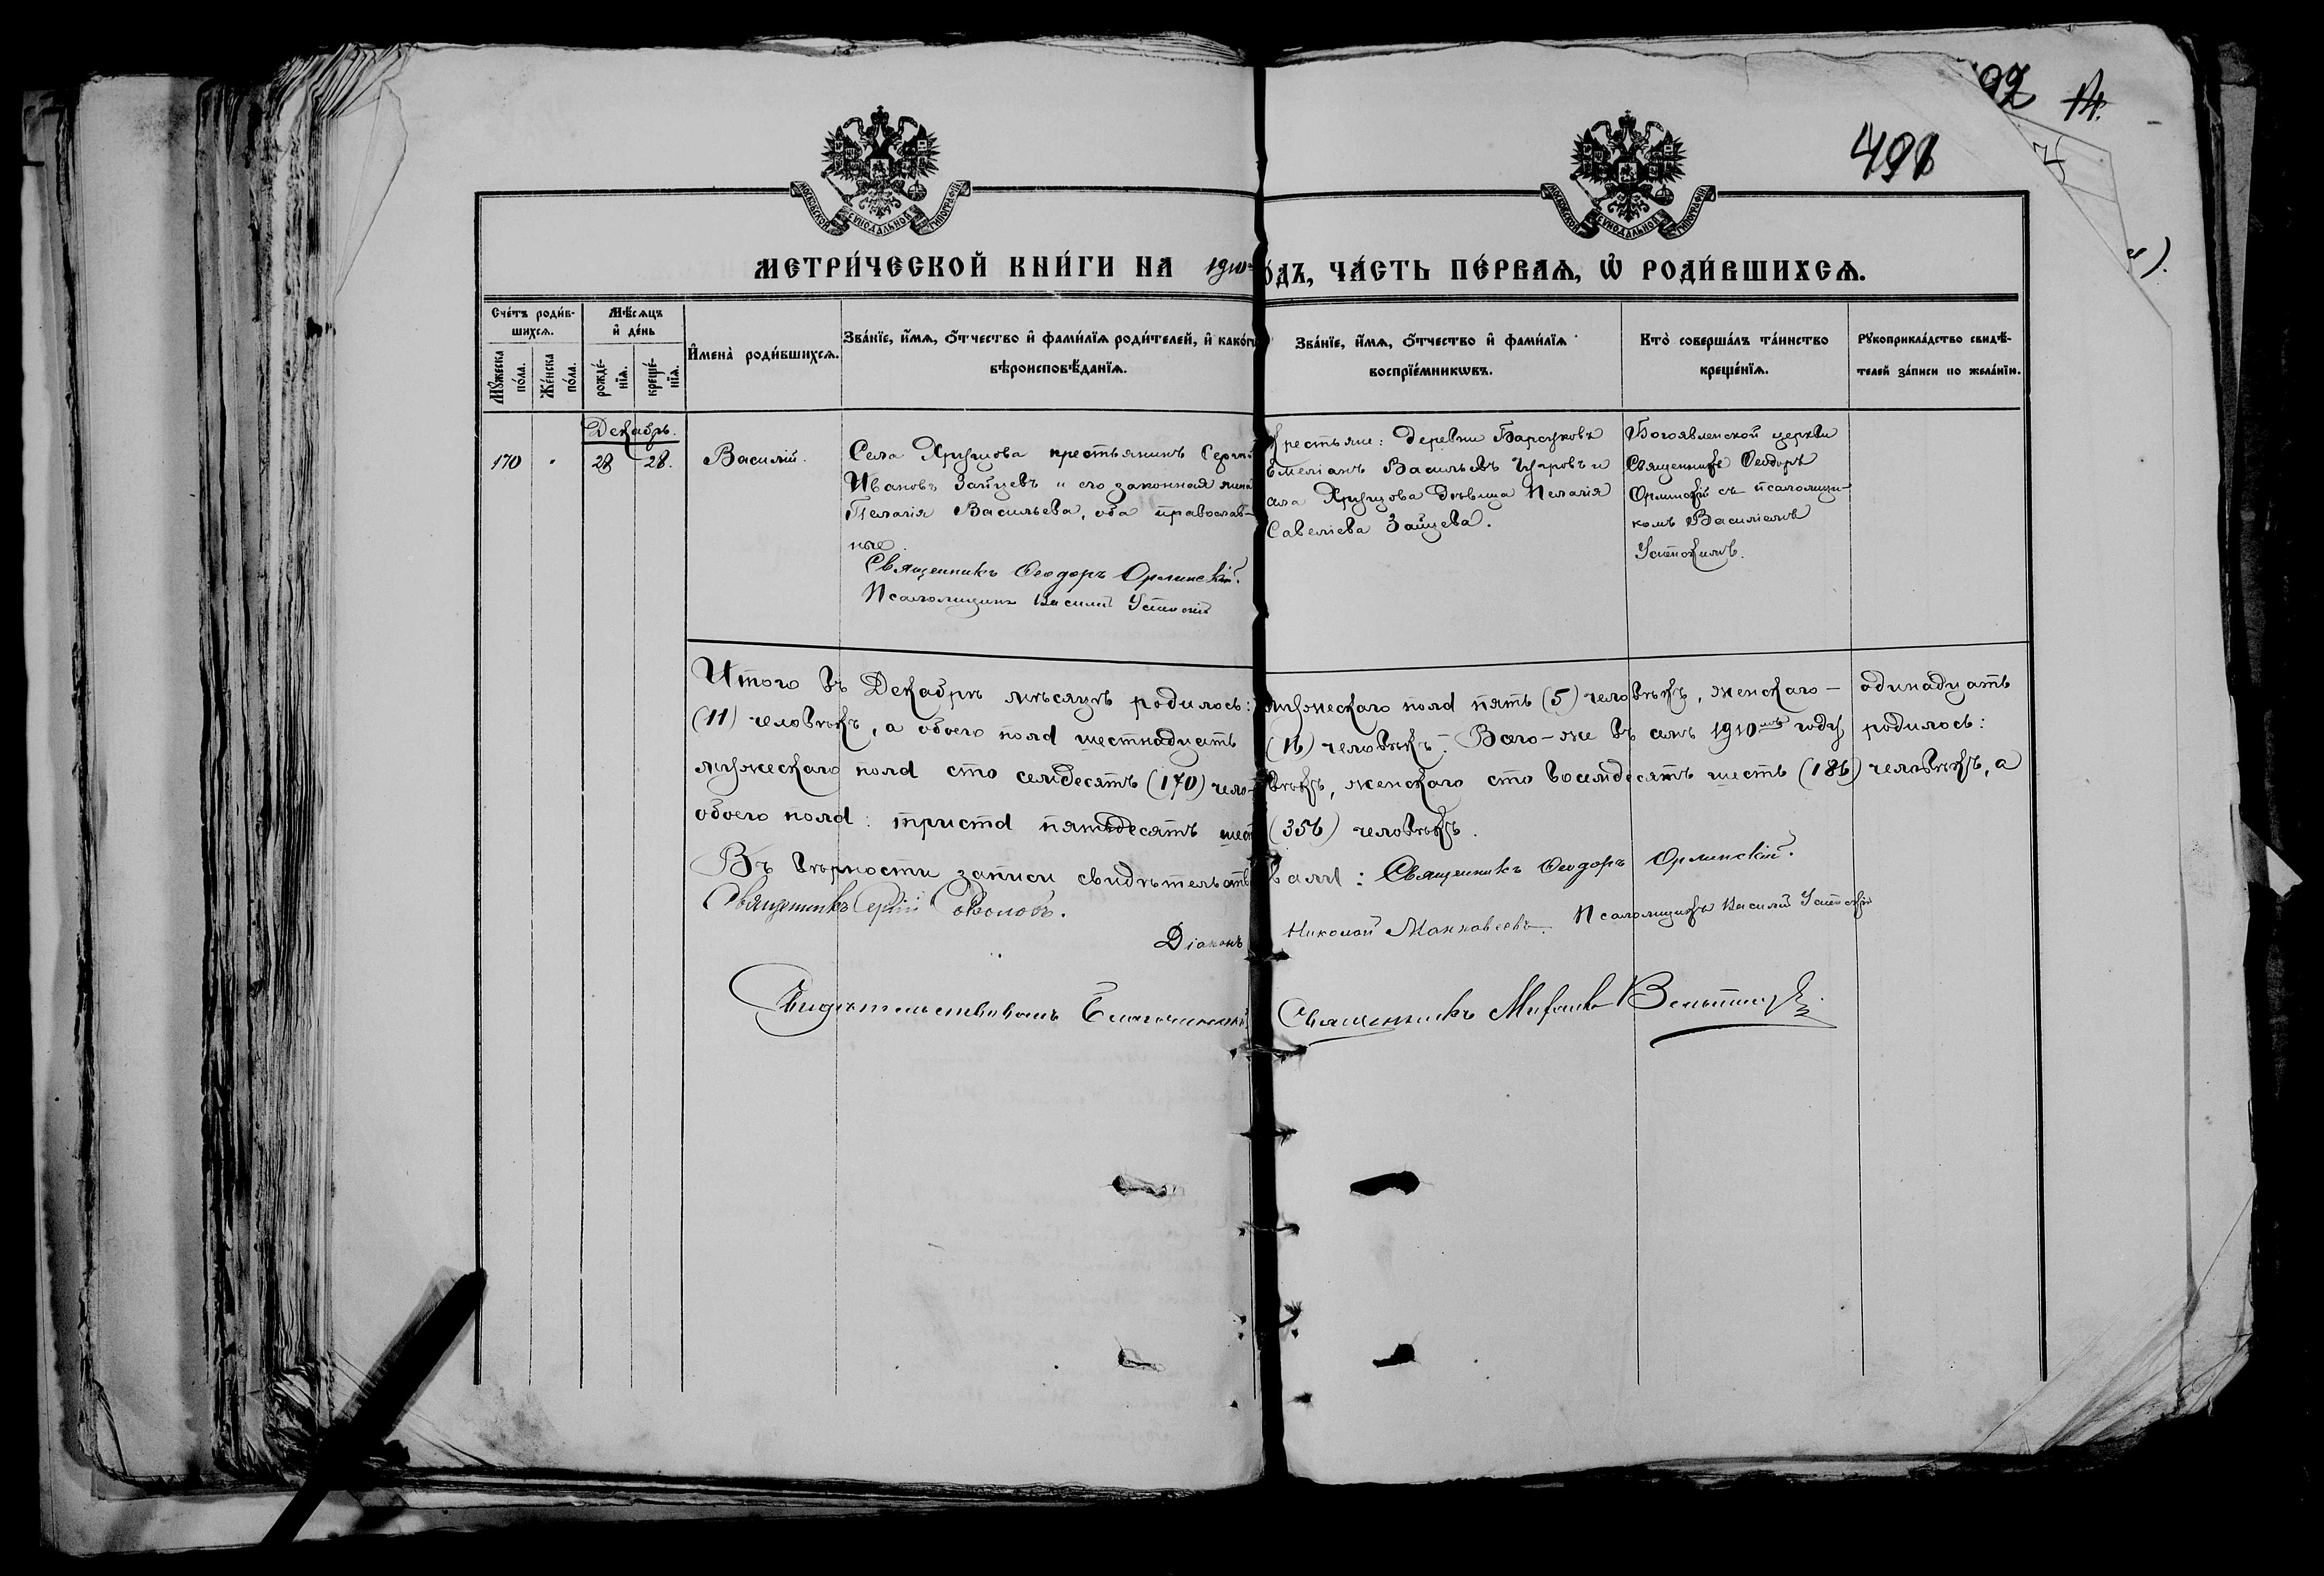 92 14.
491
МОСКОВСКОЙ СѴНОДАЛЬНОЙ ТИПОГРАФІИ
МОСКОВСКОЙ СѴНОДАЛЬНОЙ ТИПОГРАФІИ
МЕТРИ́ЧЕСКОЙ КНИ́ГИ НА 1910
О́ДЪ, ЧА́СТЬ ПЕ́РВАѦ, Ѡ҆ РОДИ́ВШИХСѦ.
Сче́тъ роди́в-
шихсѧ.
Мꙋ́жеска по́ла.
Же́нска по́ла.
Мѣ́сѧцъ
и҆ де́нь
рожде́-нїѧ.
креще́-нїѧ.
И҆мена̀ роди́вшихсѧ.
Зва́нїе, и҆́мѧ, ѻ҆́тчество и҆ фами́лїѧ роди́телей, и҆ како́гѡ
вѣроисповѣ́данїѧ.
Зва́нїе, и҆́мѧ, ѻ҆́тчество и҆ фами́лїѧ
воспрїе́мникѡвъ.
Кто̀ соверша́лъ та́инство
креще́нїѧ.
Рꙋкоприкла́дство свидѣ́-
телей за́писи по жела́нїю.
Декабрь.
170 " 28 28. Василій.
Села Хрущова крестьянинъ Сергѣй
Ивановъ Зайцевъ и его законная жена
Пелагія Васильева, оба православ-
ные.
Священникъ Ѳеодоръ Орлинскій.
Псаломщикъ Василій
Крестьяне: деревни Барсуковъ
Емеліанъ Васильевъ и
села Хрущова дѣвица Пелагія
Савеліева Зайцева.
Богоявленской церкви
Священникъ Ѳеодоръ
Орлинскій съ псаломщи-
комъ Василіемъ
Итого въ Декабрѣ мѣсяцѣ родилось: мужескаго пола пять (5) человѣкъ, женскаго – одинадцать
(11) человѣкъ, а обоего пола шестнадцать (16) человѣкъ. Всего-же въ семъ 1910мъ году родилось:
мужескаго пола сто семдесятъ (170) человѣкъ, женскаго сто восемдесятъ шесть (186) человѣкъ, а
обоего пола: триста пятьдесятъ шесть (356) человѣкъ.
Въ вѣрности записи свидѣтельствовали: Священникъ Ѳеодоръ Орлинскій.
Священникъ Сергій
Діаконъ Николай Псаломщикъ Василій
Свидѣтельствовалъ Благочинный Священникъ Михаилъ